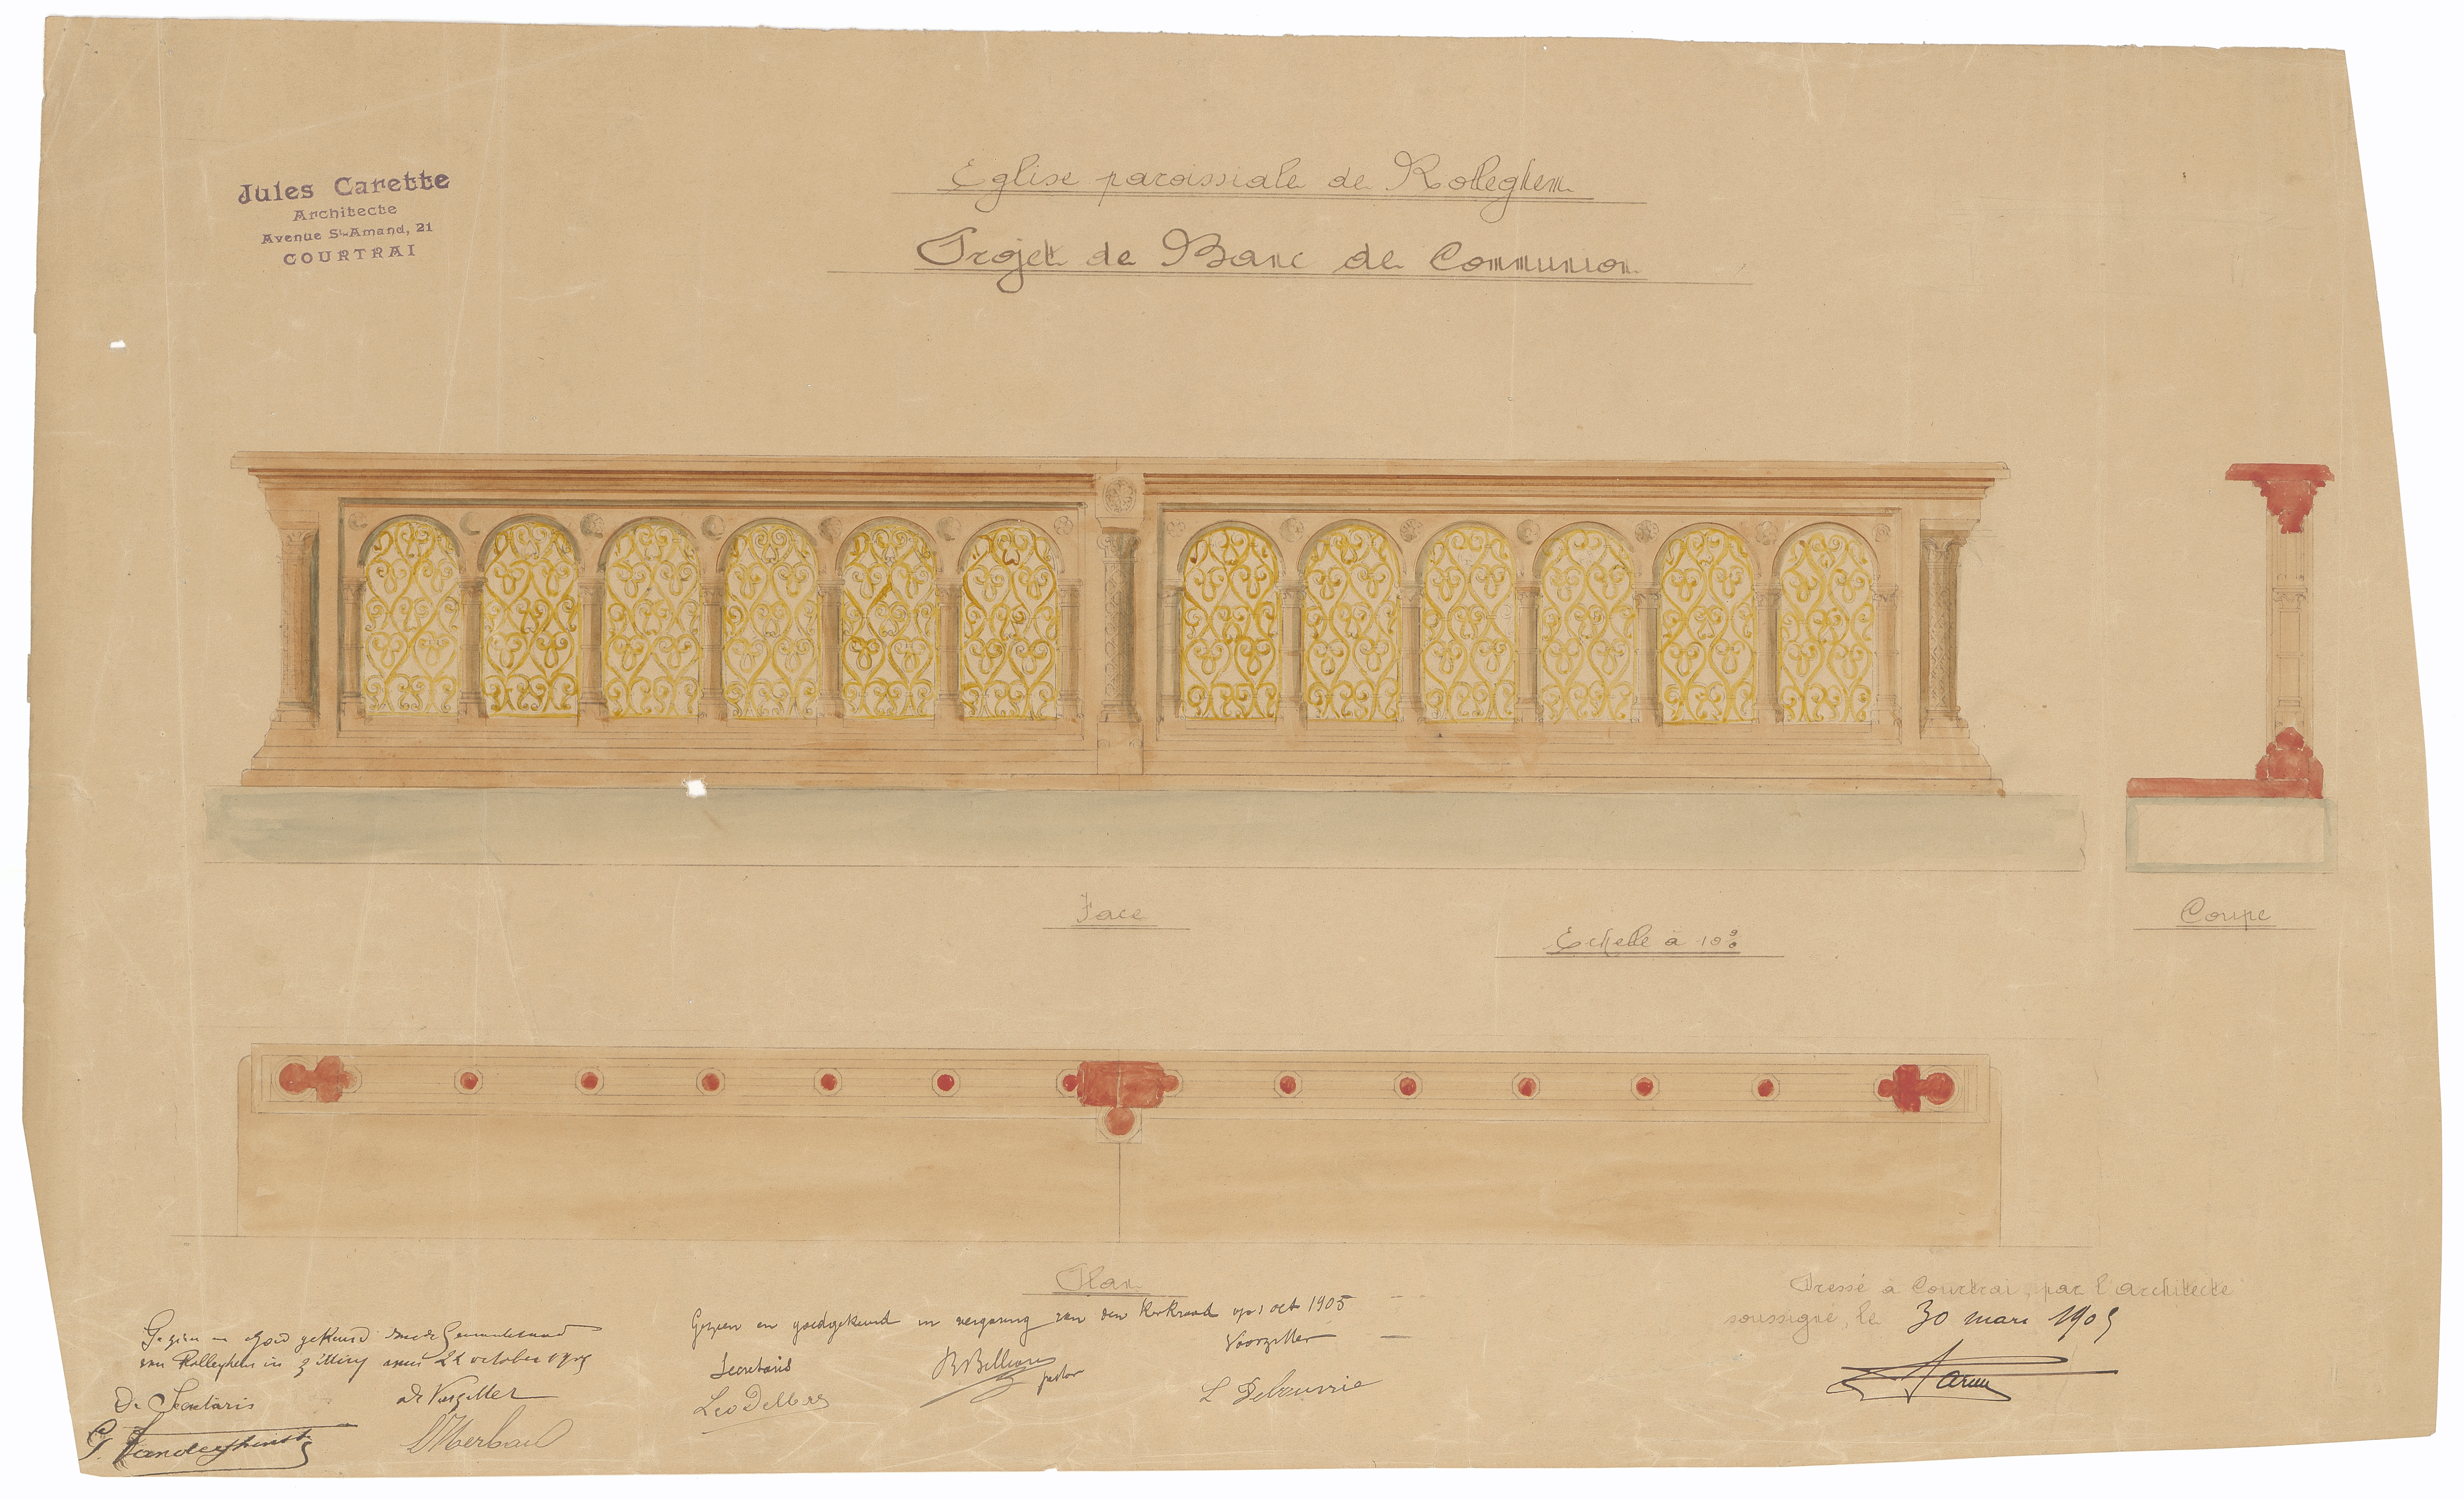 Jules Carette
Architecte
Avenue St-Amand, 21
COURTRAI
Eglise paroissiale de Rolleghem
Projet de Banc de Communion
Face
Echelle à 10%
Coupe
Plan
Gezien en goed gekeurd door de Gemeenteraad
van Rolleghem in zitting van 22 october 1905
De Secretaris
de Voorzitter
Gezien en goedgekeurd in vergaring van den Kerkraad op 1 oct 1905
Secretaris
pastor
Voorzitter
Dressé à Courtrai, par l'architecte
soussigné, le 30 mars 1905